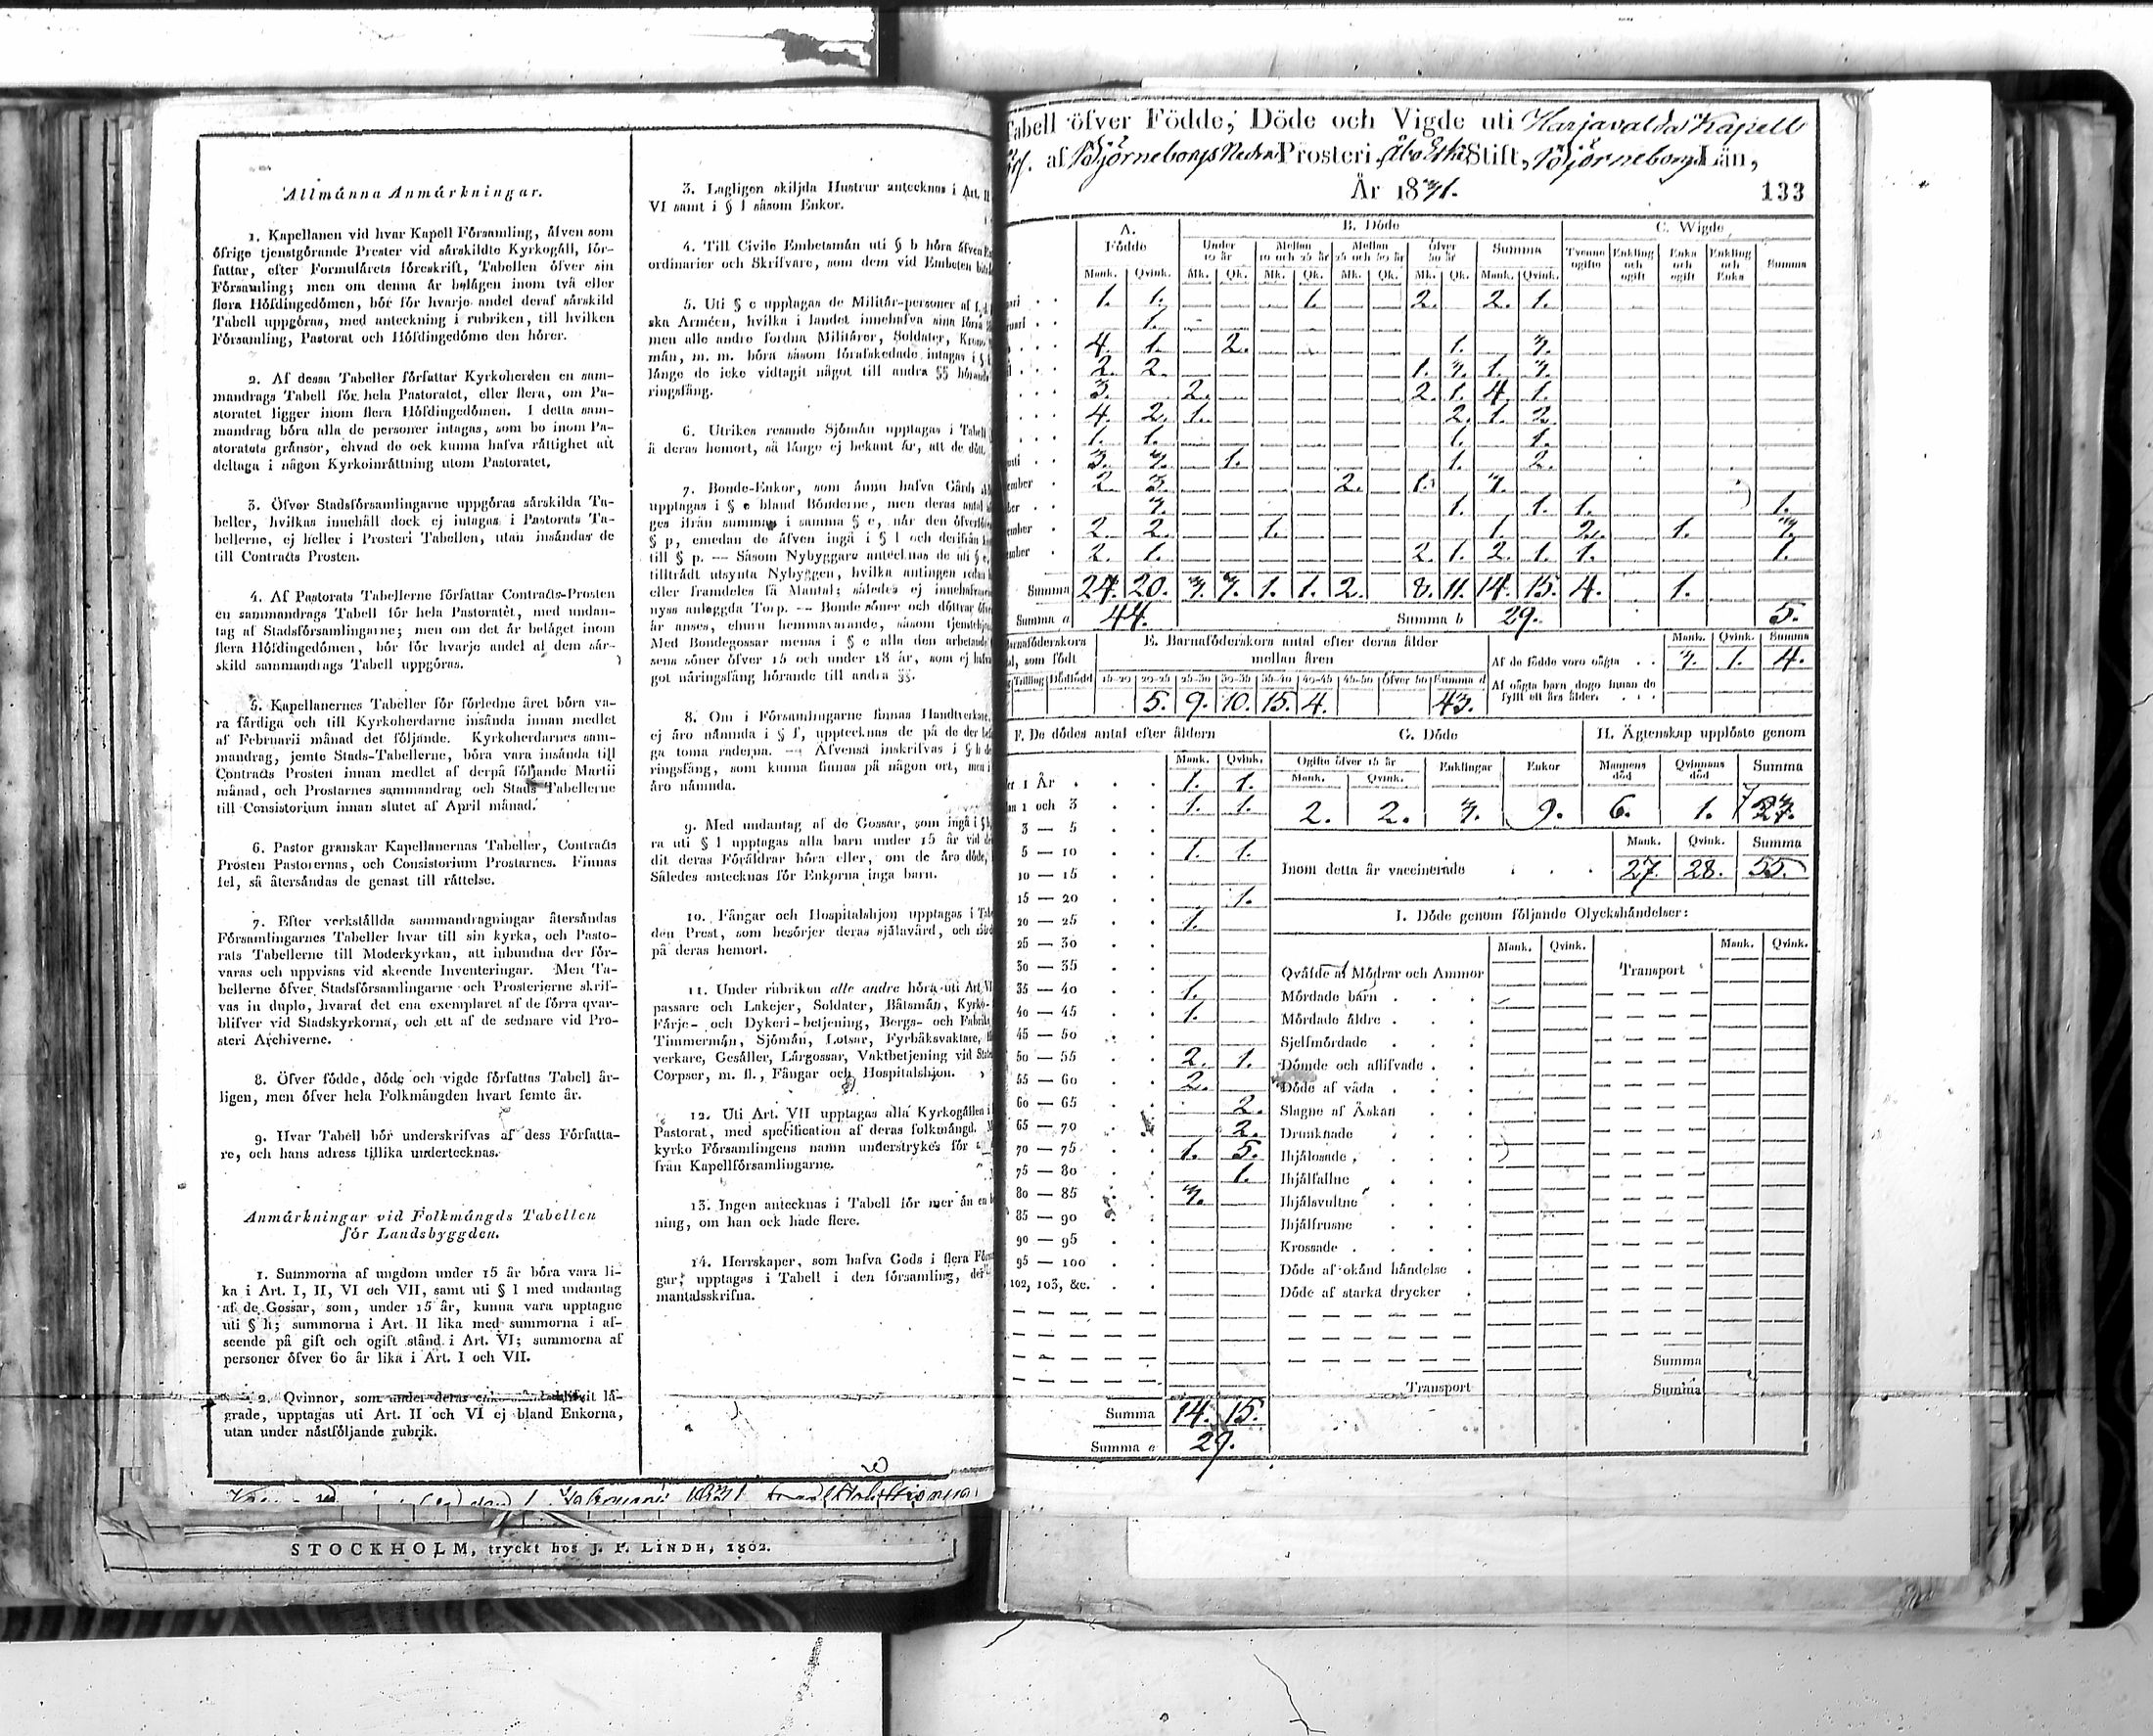 Allmånna Anmårkningar.
1. Kapellanen vid hvar Kapell Församling, åfven som
öfrige tjenstgörande Prester vid sårskildte Kyrkogåll, för-
fattar, efter Formulårets föreskrift, Tabellen öfver sin
Församling; men om denna år belågen inom två eller
flera Höfdingedömen, bör för hvarje andel deraf sårskild
Tabell uppgöras, med anteckning i rubriken, till hvilken
Församling, Pastorat och Höfdingedöme den hörer.
2. Af dessa Tabeller författar Kyrkoherden en sam-
mandrags Tabell för hela Pastoratet, eller flera, om Pa-
storatet ligger inom flera Höfdingedömen. I detta sam-
mandrag böra alla de personer intagas, som bo inom Pa-
storatets grånsor, ehvad de ock kunna hafva råttighet att
deltaga i någon Kyrkoinråttning utom Pastoratet.
3. Öfver Stadsförsamlingarne uppgöras sårskilda Ta-
beller, hvilkas innehåll dock ej intagas i Pastorats Ta-
bellerne, ej heller i Prosteri Tabellen, utan insåndas de
till Contracts Prosten.
4. Af Pastorats Tabellerne författar Contracts-Prosten
en sammandrags Tabell för hela Pastoratet, med undan-
tag af Stadsförsamlingarne; men om det år belåget inom
flera Höfdingedömen, bör för hvarje andel af dem sår-
skild sammandrags Tabell uppgöras.
5. Kapellanernes Tabeller för förledne året böra va-
ra fårdiga och till Kyrkoherdarne insånda innan medlet
af Februarii månad det följande. Kyrkoherdarnes sam-
mandrag, jemte Stads-Tabellerne, böra vara insånda till
Contracts Prosten innan medlet af derpå följande Martii
månad, och Prostarnes sammandrag och Stads Tabellerne
till Consistorium innan slutet af April månad.
6. Pastor granskar Kapellanernas Tabeller, Contracts
Prosten Pastorernas, och Consistorium Prostarnes. Finnas
fel, så återsåndas de genast till råttelse.
7. Efter verkstållda sammandragningar återsåndas
Församlingarnes Tabeller hvar till sin kyrka, och Pasto-
rats Tabellerne till Moderkyrkan, att inbundna der för-
varas och uppvisas vid skeende Inventeringar. Men Ta-
bellerne öfver Stadsförsamlingarne och Prosterierne skrif-
vas in duplo, hvaraf det ena exemplaret af de förra qvar-
blifver vid Stadskyrkorna, och ett af de sednare vid Pro-
steri Archiverne.
8. Öfver födde, döde och vigde författas Tabell år-
ligen, men öfver hela Folkmångden hvart femte år.
9. Hvar Tabell bör underskrifvas af dess Författa-
re, och hans adress tillika undertecknas.
Anmårkningar vid Folkmångds Tabellen
för Landsbyggden.
1. Summorna af ungdom under 15 år böra vara li-
ka i Art. I, II, VI och VII, samt uti § l med undantag
af de Gossar, som, under 15 år, kunna vara upptagne
uti § h; summorna i Art. II lika med summorna i af-
seende på gift och ogift stånd i Art. VI; summorna af
personer öfver 60 år lika i Art. I och VII.
2. Qvinnor, som under deras blifvit lå-
grade, upptagas uti Art. II och VI ej bland Enkorna,
utan under nåstföljande rubrik.
3. Lagligen skiljda Hustrur antecknas i Art. II
VI samt i § l såsom Enkor.
4. Till Civile Embetsmån uti § b höra åfven
ordinarier och Skrifvare, som dem vid Embeten
5. Uti § c upptagas de Militår-personer af
ska Arméen, hvilka i landet innehafva sina
men alle andre fordna Militårer, Soldater,
mån, m. m. böra såsom förafskedade intagas i §
långe de icke vidtagit något till andra §§
ringsfång.
6. Utrikes resande Sjömån upptagas i Tabell
å deras hemort, så långe ej bekant år, att de
7. Bonde-Enkor, som ånnu hafva Gård,
upptagas i § e bland Bönderne, men deras
ges ifrån summan i samma § e, når den
§ p, emedan de åfven ingå i § l och derifrån
till § p. — Såsom Nybyggare antecknas de uti § e,
tilltrådt utsynta Nybyggen, hvilka antingen
eller framdeles få Mantal; således ej
nyss anlagda Torp. — Bonde söner och döttrar
år anses, ehuru hemmavarande, såsom
Med Bondegossar menas i § e alla den
sens söner öfver 15 och under 18 år, som ej
got nåringsfång hörande till andra §§.
8. Om i Församlingarne finnas Handtverkare,
ej åro nåmnda i § f, upptecknas de på de der
ga toma raderna. — Åfvenså inskrifvas i § h
ringsfång, som kunna finnas på någon ort, men
åro nåmnda.
9. Med undantag af de Gossar, som ingå i § h,
ra uti § l upptagas alla barn under 15 år vid
dit deras Föråldrar höra eller, om de åro döde,
Således antecknas för Enkorna inga barn.
10. Fångar och Hospitalshjon upptagas i
den Prest, som besörjer deras sjålavård, och
på deras hemort.
11. Under rubriken alle andre höra uti Art. VI
passare och Lakejer, Soldater, Båtsmån, Kyrko-
Fårje- och Dykeri-betjening, Bergs- och
Timmermån, Sjömån, Lotsar, Fyrbåksvaktare,
verkare, Gesåller, Lårgossar, Vaktbetjening vid
Corpser, m. fl., Fångar och Hospitalshjon.
12. Uti Art. VII upptagas alla Kyrkogållen i
Pastorat, med specification af deras folkmångd.
kyrko Församlingens namn understrykes för
från Kapellförsamlingarne.
13. Ingen antecknas i Tabell för mer ån en
ning, om han ock hade flere.
14. Herrskaper, som hafva Gods i flera
gar, upptagas i Tabell i den församling, der
mantalsskrifna.
STOCKHOLM, tryckt hos J. P. LINDH, 1802.
Tabell öfver Födde, Döde och Vigde uti Harjavalda Kapell
af Björneborgs Nedra Prosteri Åbo Stift, Björneborgs Län,
År 1831. 133
A. Födde B. Döde C. Wigde
Under 10 år Mellan 10 och 25 år Mellan 25 och 50 år öfver 50 år Summa Tvenne ogifte Enkling och ogift Enka och ogift Enkling och Enka Summa
Mank. Qvink. Mk. Qk. Mk. Qk. Mk. Qk. Mk. Qk. Mank. Qvink.
1. 1. 1. 2. 2. 1.
1.
4. 1. 2. 1. 3.
2. 2. 1. 3. 1. 3.
3. 2. 2. 1. 4. 1.
4. 2. 1. 2. 1. 2.
1. 1. 1. 1.
3. 3. 1. 1. 2.
2. 3. 2. 1. 3.
3. 1. 1. 1. 1.
2. 2. 1. 1. 2. 1. 3.
2. 1. 2. 1. 2. 1. 1. 1.
Summa 24. 20. 3. 3. 1. 1. 2. 8. 11. 14. 15. 4. 1.
Summa a 44. Summa b 29. 5.
E. Barnaföderskors antal efter deras ålder
mellan åren
Trilling Dödfödd 15-20 20-25 25-30 30-35 35-40 40-45 45-50 öfver 50 Summa d
5. 9. 10. 15. 4. 43.
Mank. Qvink. Summa
Af de födde voro oågta 3. 1. 4.
Af oågta barn dogo innan de
fyllt ett års ålder.
F. De dödes antal efter åldern
Mank. Qvink.
1 År 1. 1.
1 och 3 1. 1.
3 — 5
5 — 10 1. 1.
10 — 15
15 — 20 1.
20 — 25 1.
25 — 30
30 — 35
35 — 40 1.
40 — 45 1.
45 — 50
50 — 55 2. 1.
55 — 60 2.
60 — 65 2.
65 — 70 2.
70 — 75 1. 5.
75 — 80 1.
80 — 85 3.
85 — 90
90 — 95
95 — 100
102, 103, &c.
Summa 14. 15.
Summa e 29.
G. Döde H. Ågtenskap upplöste genom
Ogifte öfver 15 år Enklingar Enkor Mannens död Qvinnans död Summa
Mank. Qvink.
2. 2. 3. 9. 6. 1.
Mank. Qvink. Summa
Inom detta år vaccinerade 27. 28. 55.
I. Döde genom följande Olyckshåndelser:
Mank. Qvink. Mank. Qvink.
Qvåfde af Mödrar och Ammor Transport
Mördade barn
Mördade åldre
Sjelfmördade
Dömde och aflifvade
Döde af våda
Slagne af Åskan
Drunknade
Ihjålosade
Ihjålfallne
Ihjålsvultne
Ihjålfrusne
Krossade
Döde af okånd håndelse
Döde af starka drycker
Summa
Transport Summa